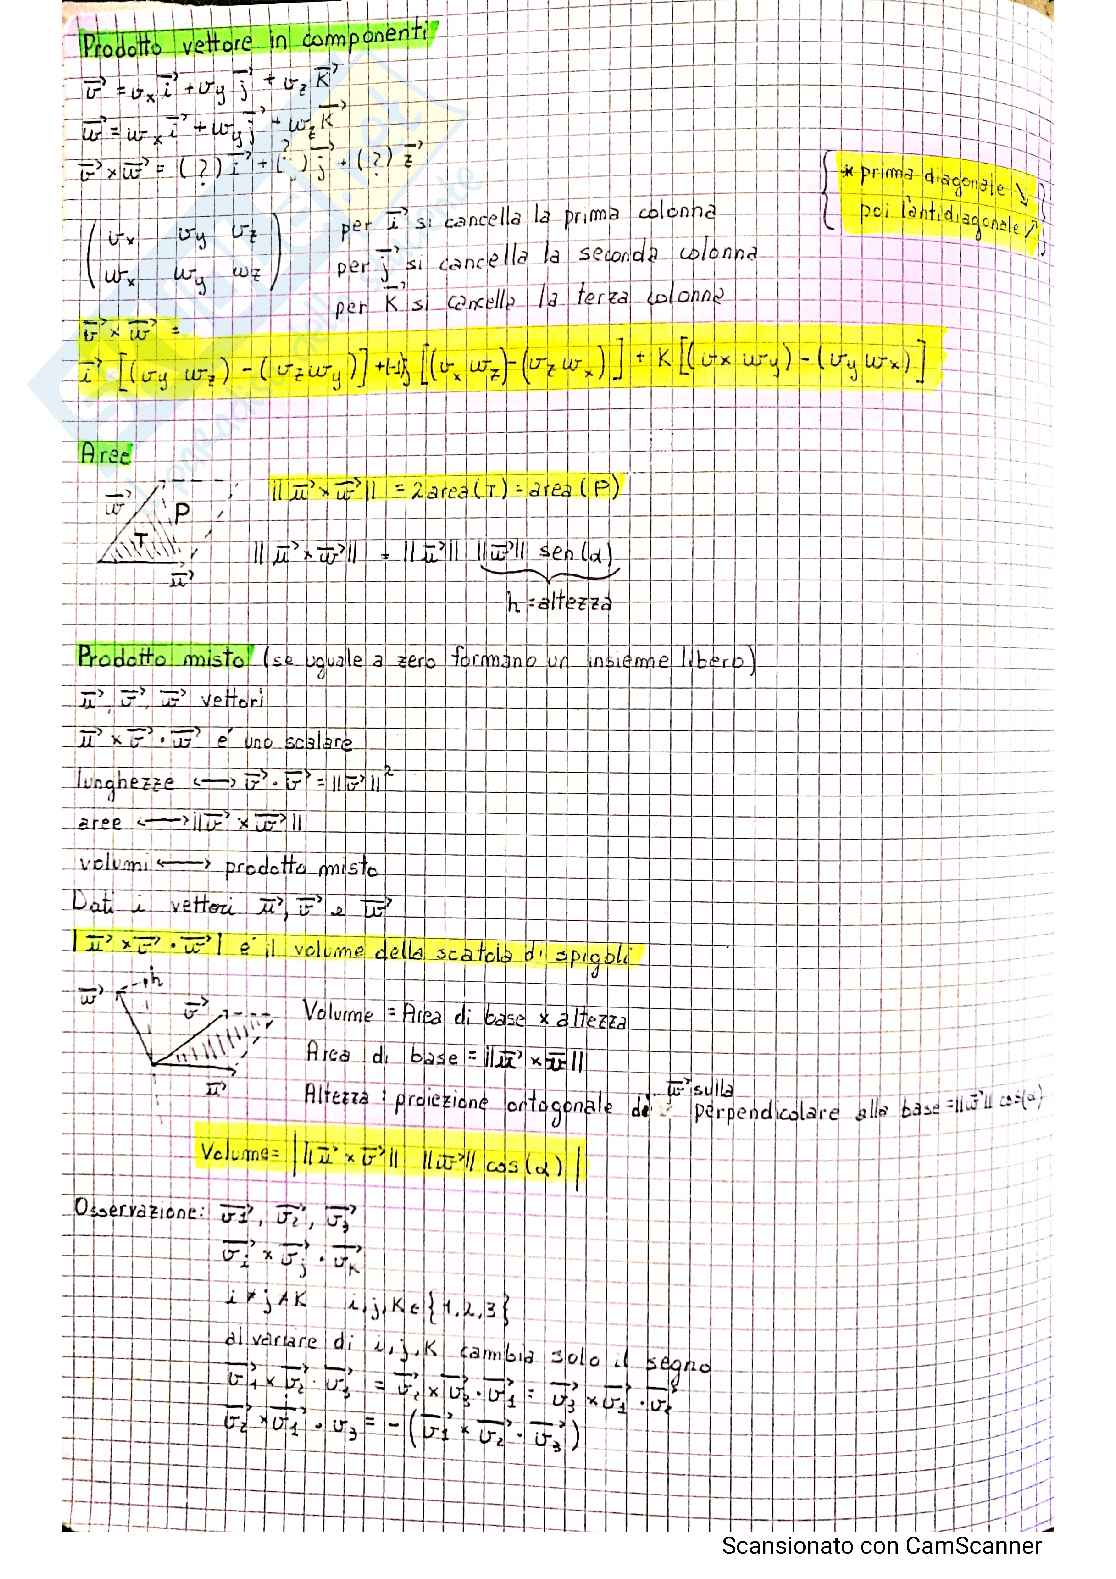 Prodotto vettore in componenti
v⃗ = vₓ i⃗ + v_y j⃗ + v_z K⃗
w⃗ = wₓ i⃗ + w_y j⃗ + w_z K⃗
v⃗ × w⃗ = (?) i⃗ + (?) j⃗ + (?) z⃗
* prima diagonale ↘
poi l'antidiagonale ↗
( vₓ v_y v_z )
( wₓ w_y w_z )
per i⃗ si cancella la prima colonna
per j⃗ si cancella la seconda colonna
per K⃗ si cancella la terza colonna
v⃗ × w⃗ =
i⃗ [(v_y w_z) - (v_z w_y)] + (-1)j [(vₓ w_z) - (v_z wₓ)] + K [(vₓ w_y) - (v_y wₓ)]
Aree
w⃗ P T u⃗
||u⃗ × w⃗|| = 2 area(T) = area(P)
||u⃗ × w⃗|| = ||u⃗|| ||w⃗|| sen(α)
h = altezza
Prodotto misto (se uguale a zero formano un insieme libero)
u⃗, v⃗, w⃗ vettori
u⃗ × v⃗ · w⃗ è uno scalare
lunghezze ⟷ v⃗ · v⃗ = ||v⃗||²
aree ⟷ ||v⃗ × w⃗||
volumi ⟷ prodotto misto
Dati i vettori u⃗, v⃗ e w⃗
|u⃗ × v⃗ · w⃗| è il volume della scatola di spigoli
w⃗ h v⃗ u⃗
Volume = Area di base × altezza
Area di base = ||u⃗ × v⃗||
Altezza: proiezione ortogonale di w⃗ sulla perpendicolare alla base = ||w⃗|| cos(α)
Volume = | ||u⃗ × v⃗|| ||w⃗|| cos(α) |
Osservazione: v₁⃗, v₂⃗, v₃⃗
v_i⃗ × v_j⃗ · v_K⃗
i ≠ j ≠ K i, j, K ∈ {1, 2, 3}
al variare di i, j, K cambia solo il segno
v₁⃗ × v₂⃗ · v₃⃗ = v₂⃗ × v₃⃗ · v₁⃗ = v₃⃗ × v₁⃗ · v₂⃗
v₂⃗ × v₁⃗ · v₃ = - (v₁⃗ × v₂⃗ · v₃⃗)
Scansionato con CamScanner